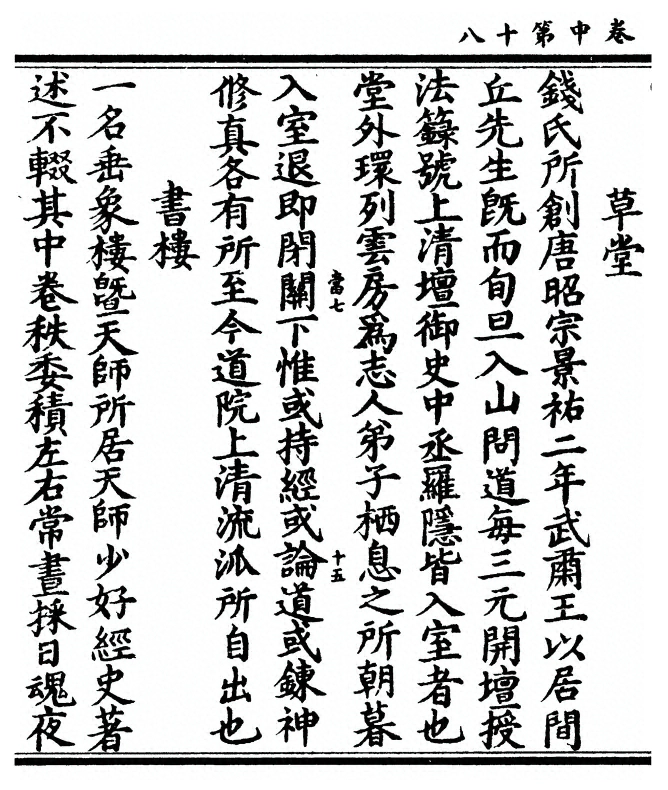 卷中第十八
草堂
錢氏所創唐昭宗景祐二年武肅王以居間
丘先生旣而旬旦入山問道每三元開壇授
法籙號上清壇御史中丞羅隱皆入室者也
堂外環列雲房爲志人弟子栖息之所朝暮
當七
十五
入室退即閉關下惟或持經或論道或鍊神
修真各有所至今道院上清流派所自出也
書樓
一名垂象樓曁天師所居天師少好經史著
述不輟其中卷秩委積左右常晝採日魂夜